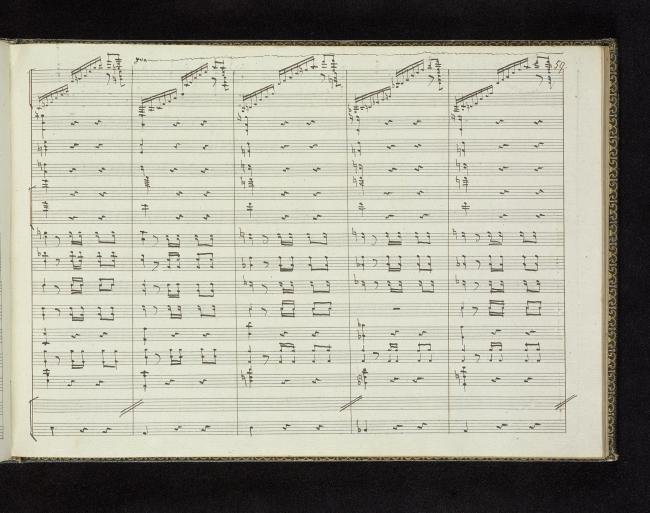 8va
59